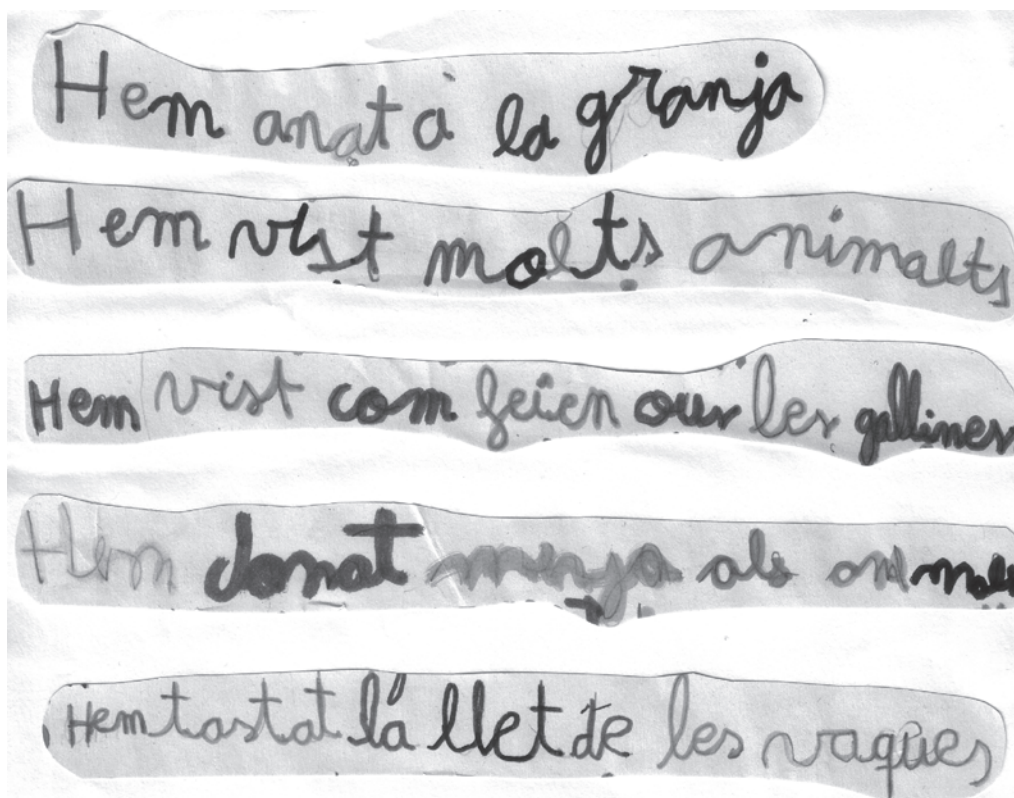 Hem anat a la granja
Hem vist molts animalts
Hem vist com feien ous les gallines
Hem donat menja als animals
Hem tastat la llet de les vaques